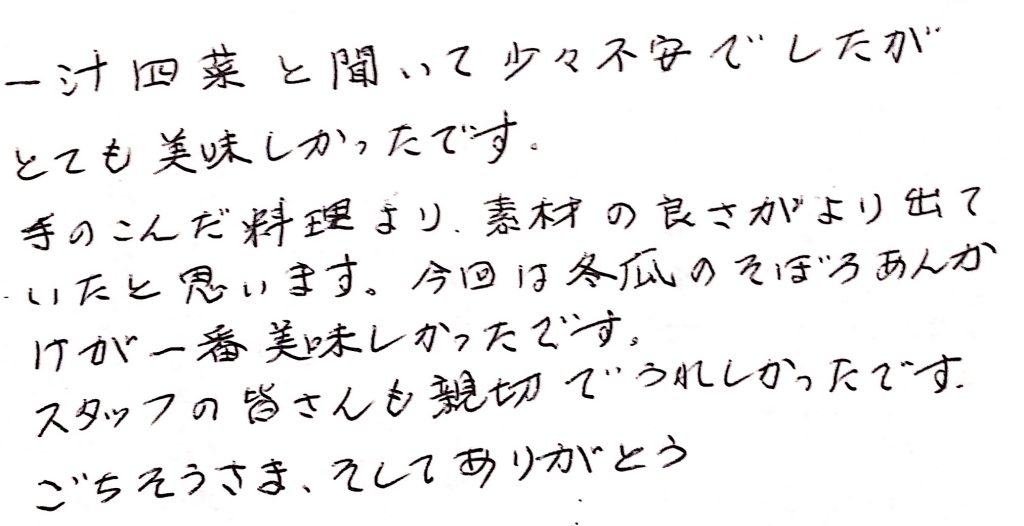 一汁四菜と聞いて少々不安でしたが
とても美味しかったです。
手のこんだ料理より、素材の良さがより出て
いたと思います。今回は冬瓜のそぼろあんか
けが一番美味しかったです。
スタッフの皆さんも親切でうれしかったです.
ごちそうさま、そしてありがとう